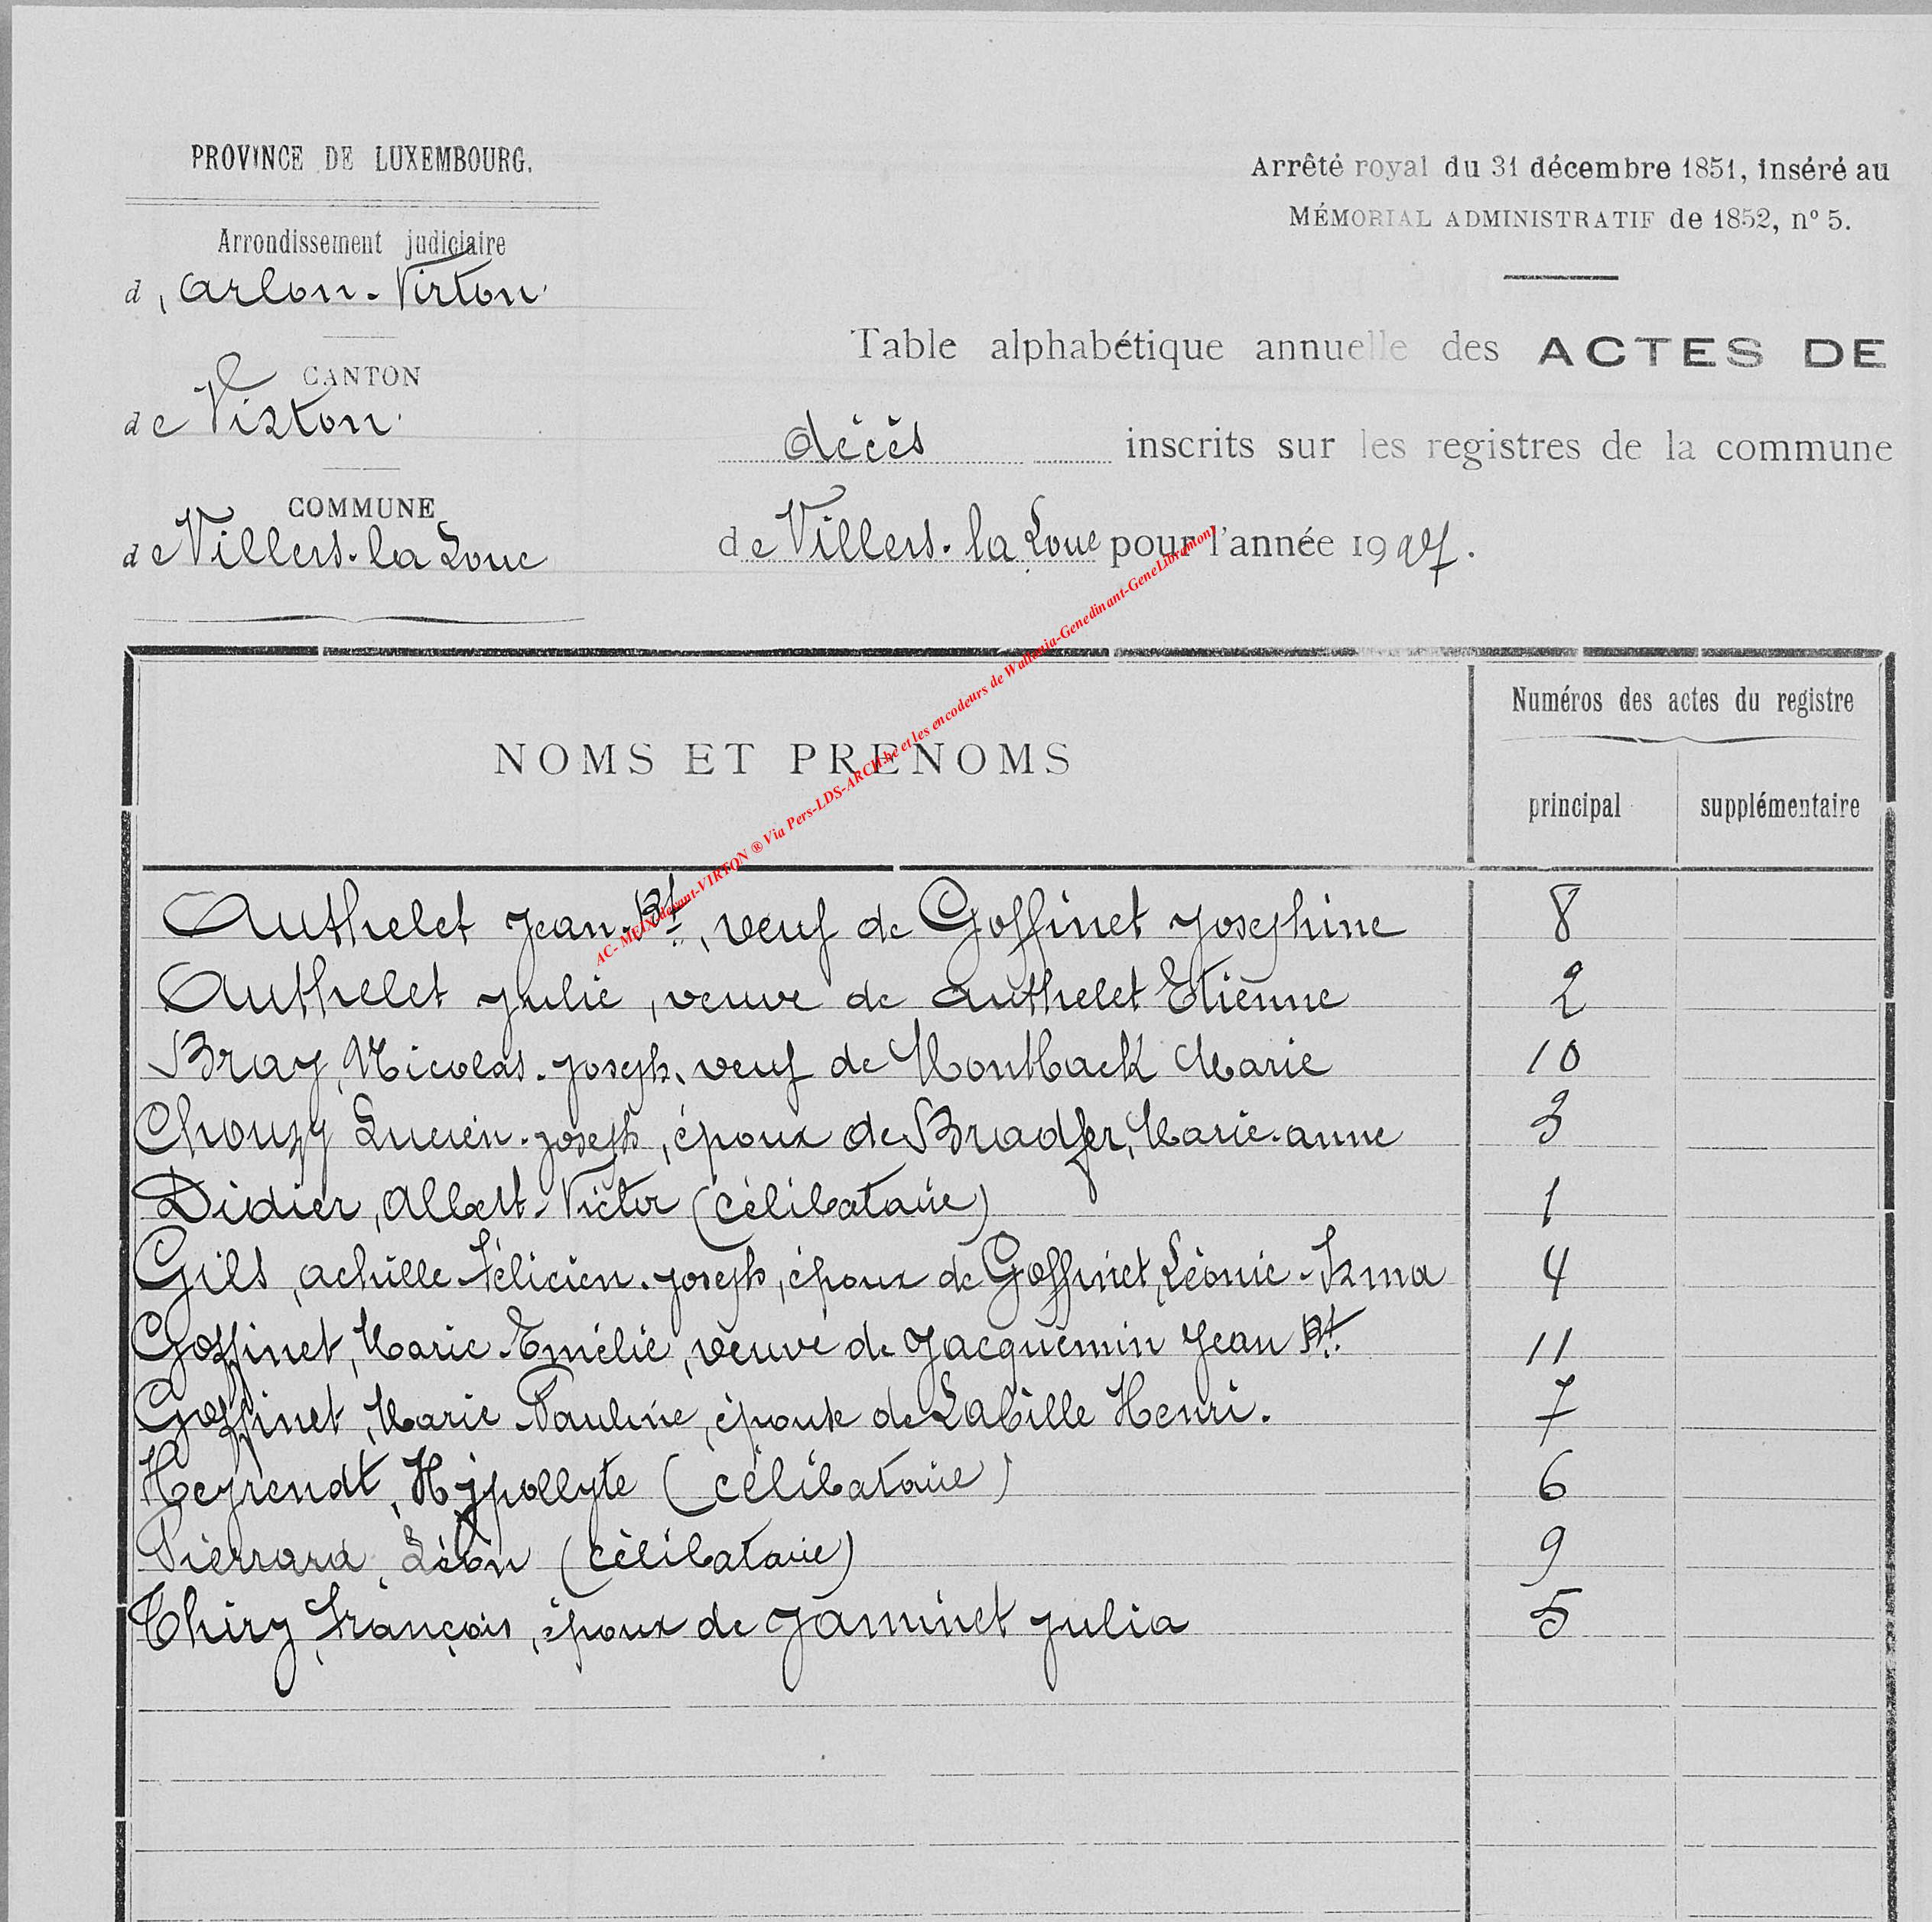 PROVINCE DE LUXEMBOURG.
Arrondissement judiciaire
d, Arlon-Virton
CANTON
de Virton
COMMUNE
de Villers-la Loue
Arrêté royal du 31 décembre 1851, inséré au
MÉMORIAL ADMINISTRATIF de 1852, nº 5.
Table alphabétique annuelle des ACTES DE
décès inscrits sur les registres de la commune
de Villers-la Loue pour l'année 1927.
AC- MEIX-devant-VIRTON ® Via Pers-LDS-ARCH.be et les encodeurs de Wallonia-Genedinant-GeneLibramont
NOMS ET PRENOMS
Numéros des actes du registre
principal supplémentaire
Authelet Jean-Bt, veuf de Goffinet Josephine 8
Authelet Julie, veuve de Authelet Etienne 2
Bray, Nicolas-Joseph, veuf de Montback Marie 10
Chouzy Lucien-Joseph, époux de Bradfer, Marie-Anne 3
Didier, Albert-Victor (célibataire) 1
Gils, Achille-Félicien-Joseph, époux de Goffinet, Léonie-Irma 4
Goffinet, Marie-Emélie, veuve de Jacquemin Jean Bt. 11
Goffinet, Marie-Pauline, épouse de Labille Henri. 7
Heyrendt, Hypollyte (célibataire) 6
Pierrard, Léon (célibataire) 9
Thiry, François, époux de Jaminet Julia 5